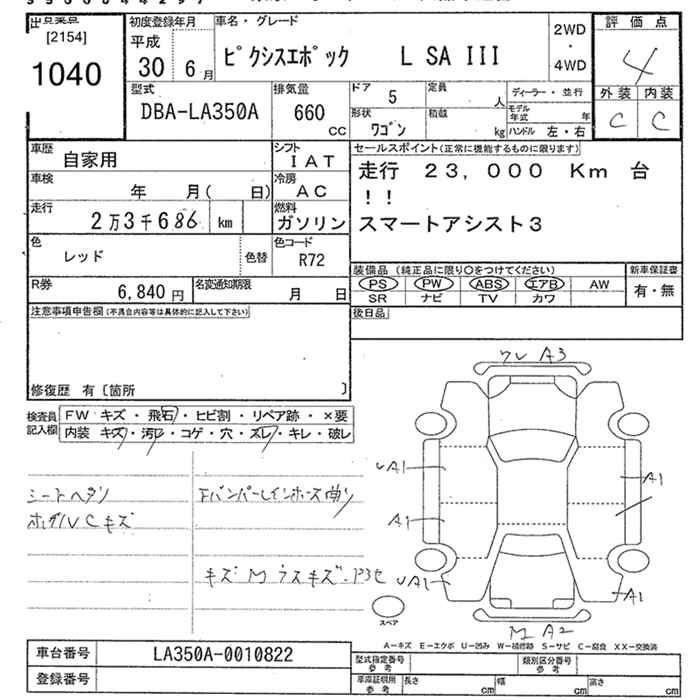 出品業店
[2154]
1040
初度登録年月
平成
30 6月
車名・グレード
ピクシスエポック L SA III
2WD
・
4WD
評価点
4
型式
DBA-LA350A
排気量
660
CC
ドア 5
定員 人
形状 ワゴン
積載 kg
ディーラー・並行
モデル年式 年
ハンドル 左・右
外装 内装
C C
車歴
自家用
シフト
IAT
車検
年 月( 日)
冷房
AC
走行
2万3千686 km
燃料
ガソリン
色
レッド
色替
色コード
R72
R券
6,840円
名変通知期限
月 日
セールスポイント(正常に機能するものに限ります)
走行 23,000 Km 台
!!
スマートアシスト3
装備品 (純正品に限り○をつけてください)
新車保証書
PS PW ABS エアB AW
有・無
SR ナビ TV カワ
後日品
注意事項申告欄(不具合内容等は具体的に記入して下さい)
修復歴 有〔箇所 〕
検査員記入欄
FW キズ・飛石・ヒビ割・リペア跡・×要
内装 キズ・汚レ・コゲ・穴・スレ・キレ・破レ
シートヘタリ
ホイルVCキズ
FバンパーLインホース曲リ
キズ M ラスキズ
ワレ A3
A1
A1
A1
UA1
A1
M A2
スペア
A-キズ E-エクボ U-凹み W-補修跡 S-サビ C-腐食 XX-交換済
車台番号
LA350A-0010822
登録番号
型式指定番号
参考
類別区分番号
参考
車庫証明用
参考
長さ cm
幅 cm
高さ cm